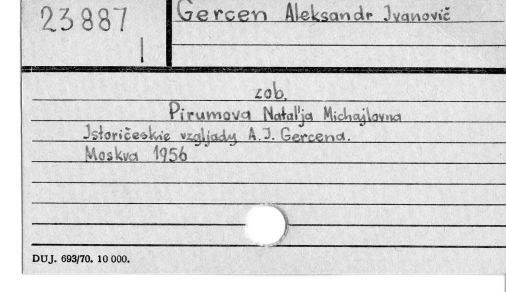 23887
I
Gercen Aleksandr Ivanovič
zob.
Pirumova Natal'ja Michajlovna
Istoričeskie vzgljady A.I. Gercena.
Moskva 1956
DUJ. 693/70. 10 000.